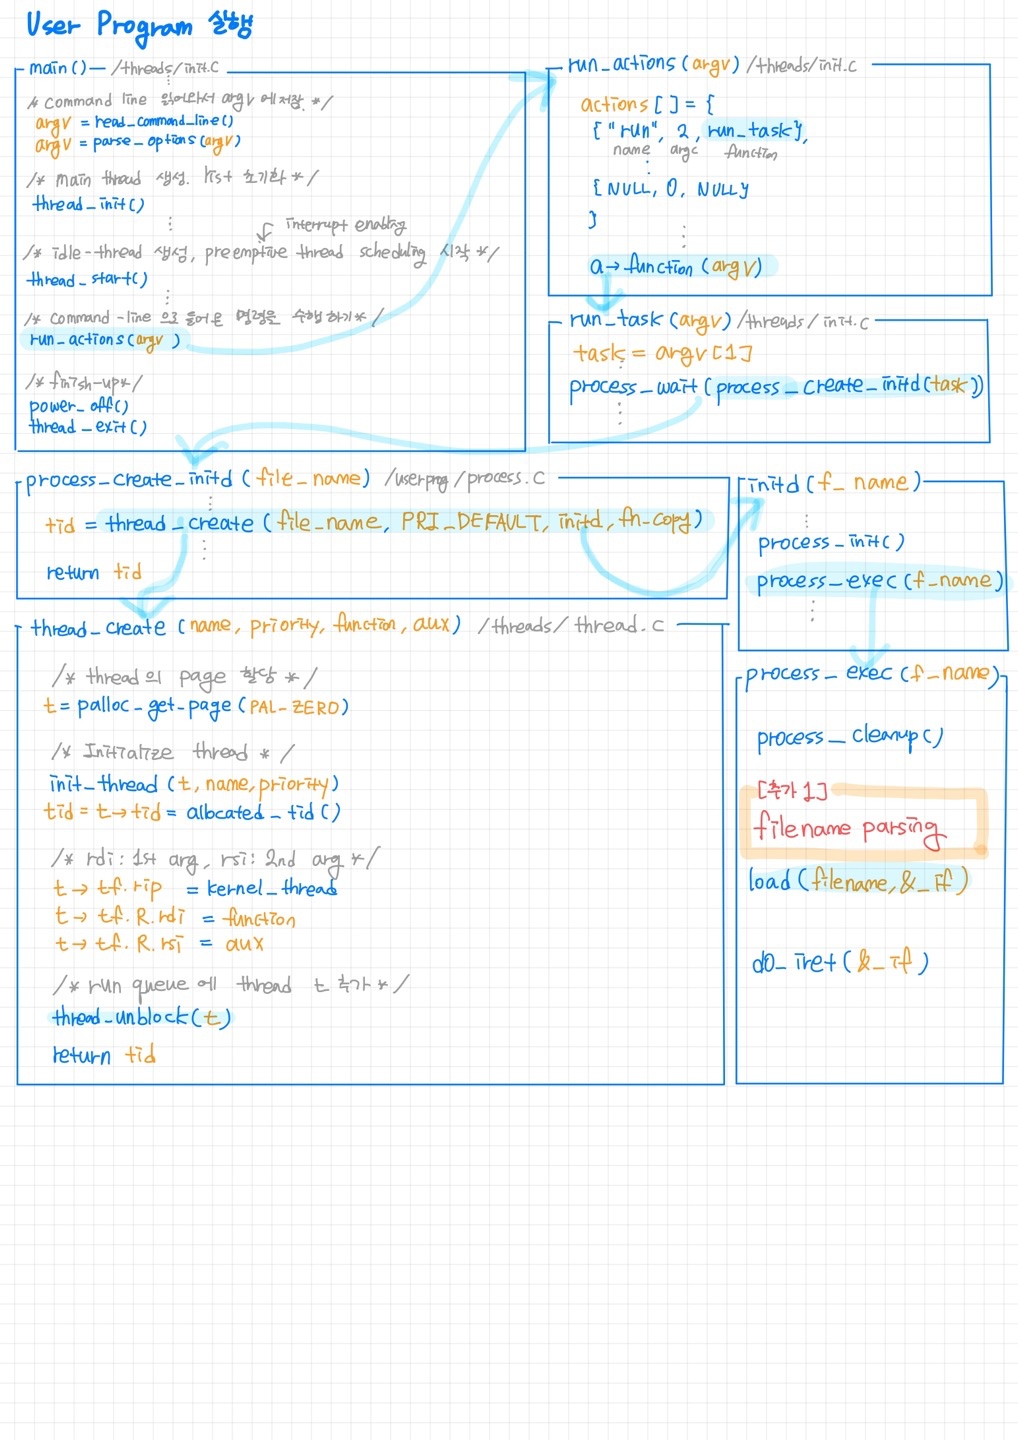 User Program 실행
main() /threads/init.c
/* Command line 읽어와서 argv 에 저장. */
argv = read_command_line()
argv = parse_options(argv)
/* main thread 생성. list 초기화 */
thread_init()
interrupt enabling
/* idle-thread 생성, preemptive thread scheduling 시작 */
thread_start()
/* command-line 으로 들어온 명령을 수행하기 */
run_actions(argv)
/* finish-up */
power_off()
thread_exit()
run_actions(argv) /threads/init.c
actions[] = {
{"run", 2, run_task},
name argc function
{NULL, 0, NULL}
}
a→function(argv)
run_task(argv) /threads/init.c
task = argv[1]
process_wait(process_create_initd(task))
process_create_initd(file_name) /userprog/process.c
tid = thread_create(file_name, PRI_DEFAULT, initd, fn_copy)
return tid
initd(f_name)
process_init()
process_exec(f_name)
thread_create(name, priority, function, aux) /threads/thread.c
/* thread의 page 할당 */
t = palloc_get_page(PAL_ZERO)
/* Initialize thread */
init_thread(t, name, priority)
tid = t→tid = allocated_tid()
/* rdi: 1st arg, rsi: 2nd arg */
t→tf.rip = kernel_thread
t→tf.R.rdi = function
t→tf.R.rsi = aux
/* run queue에 thread t 추가 */
thread_unblock(t)
return tid
process_exec(f_name)
process_cleanup()
[추가1]
filename parsing
load(filename, &_if)
do_iret(&_if)